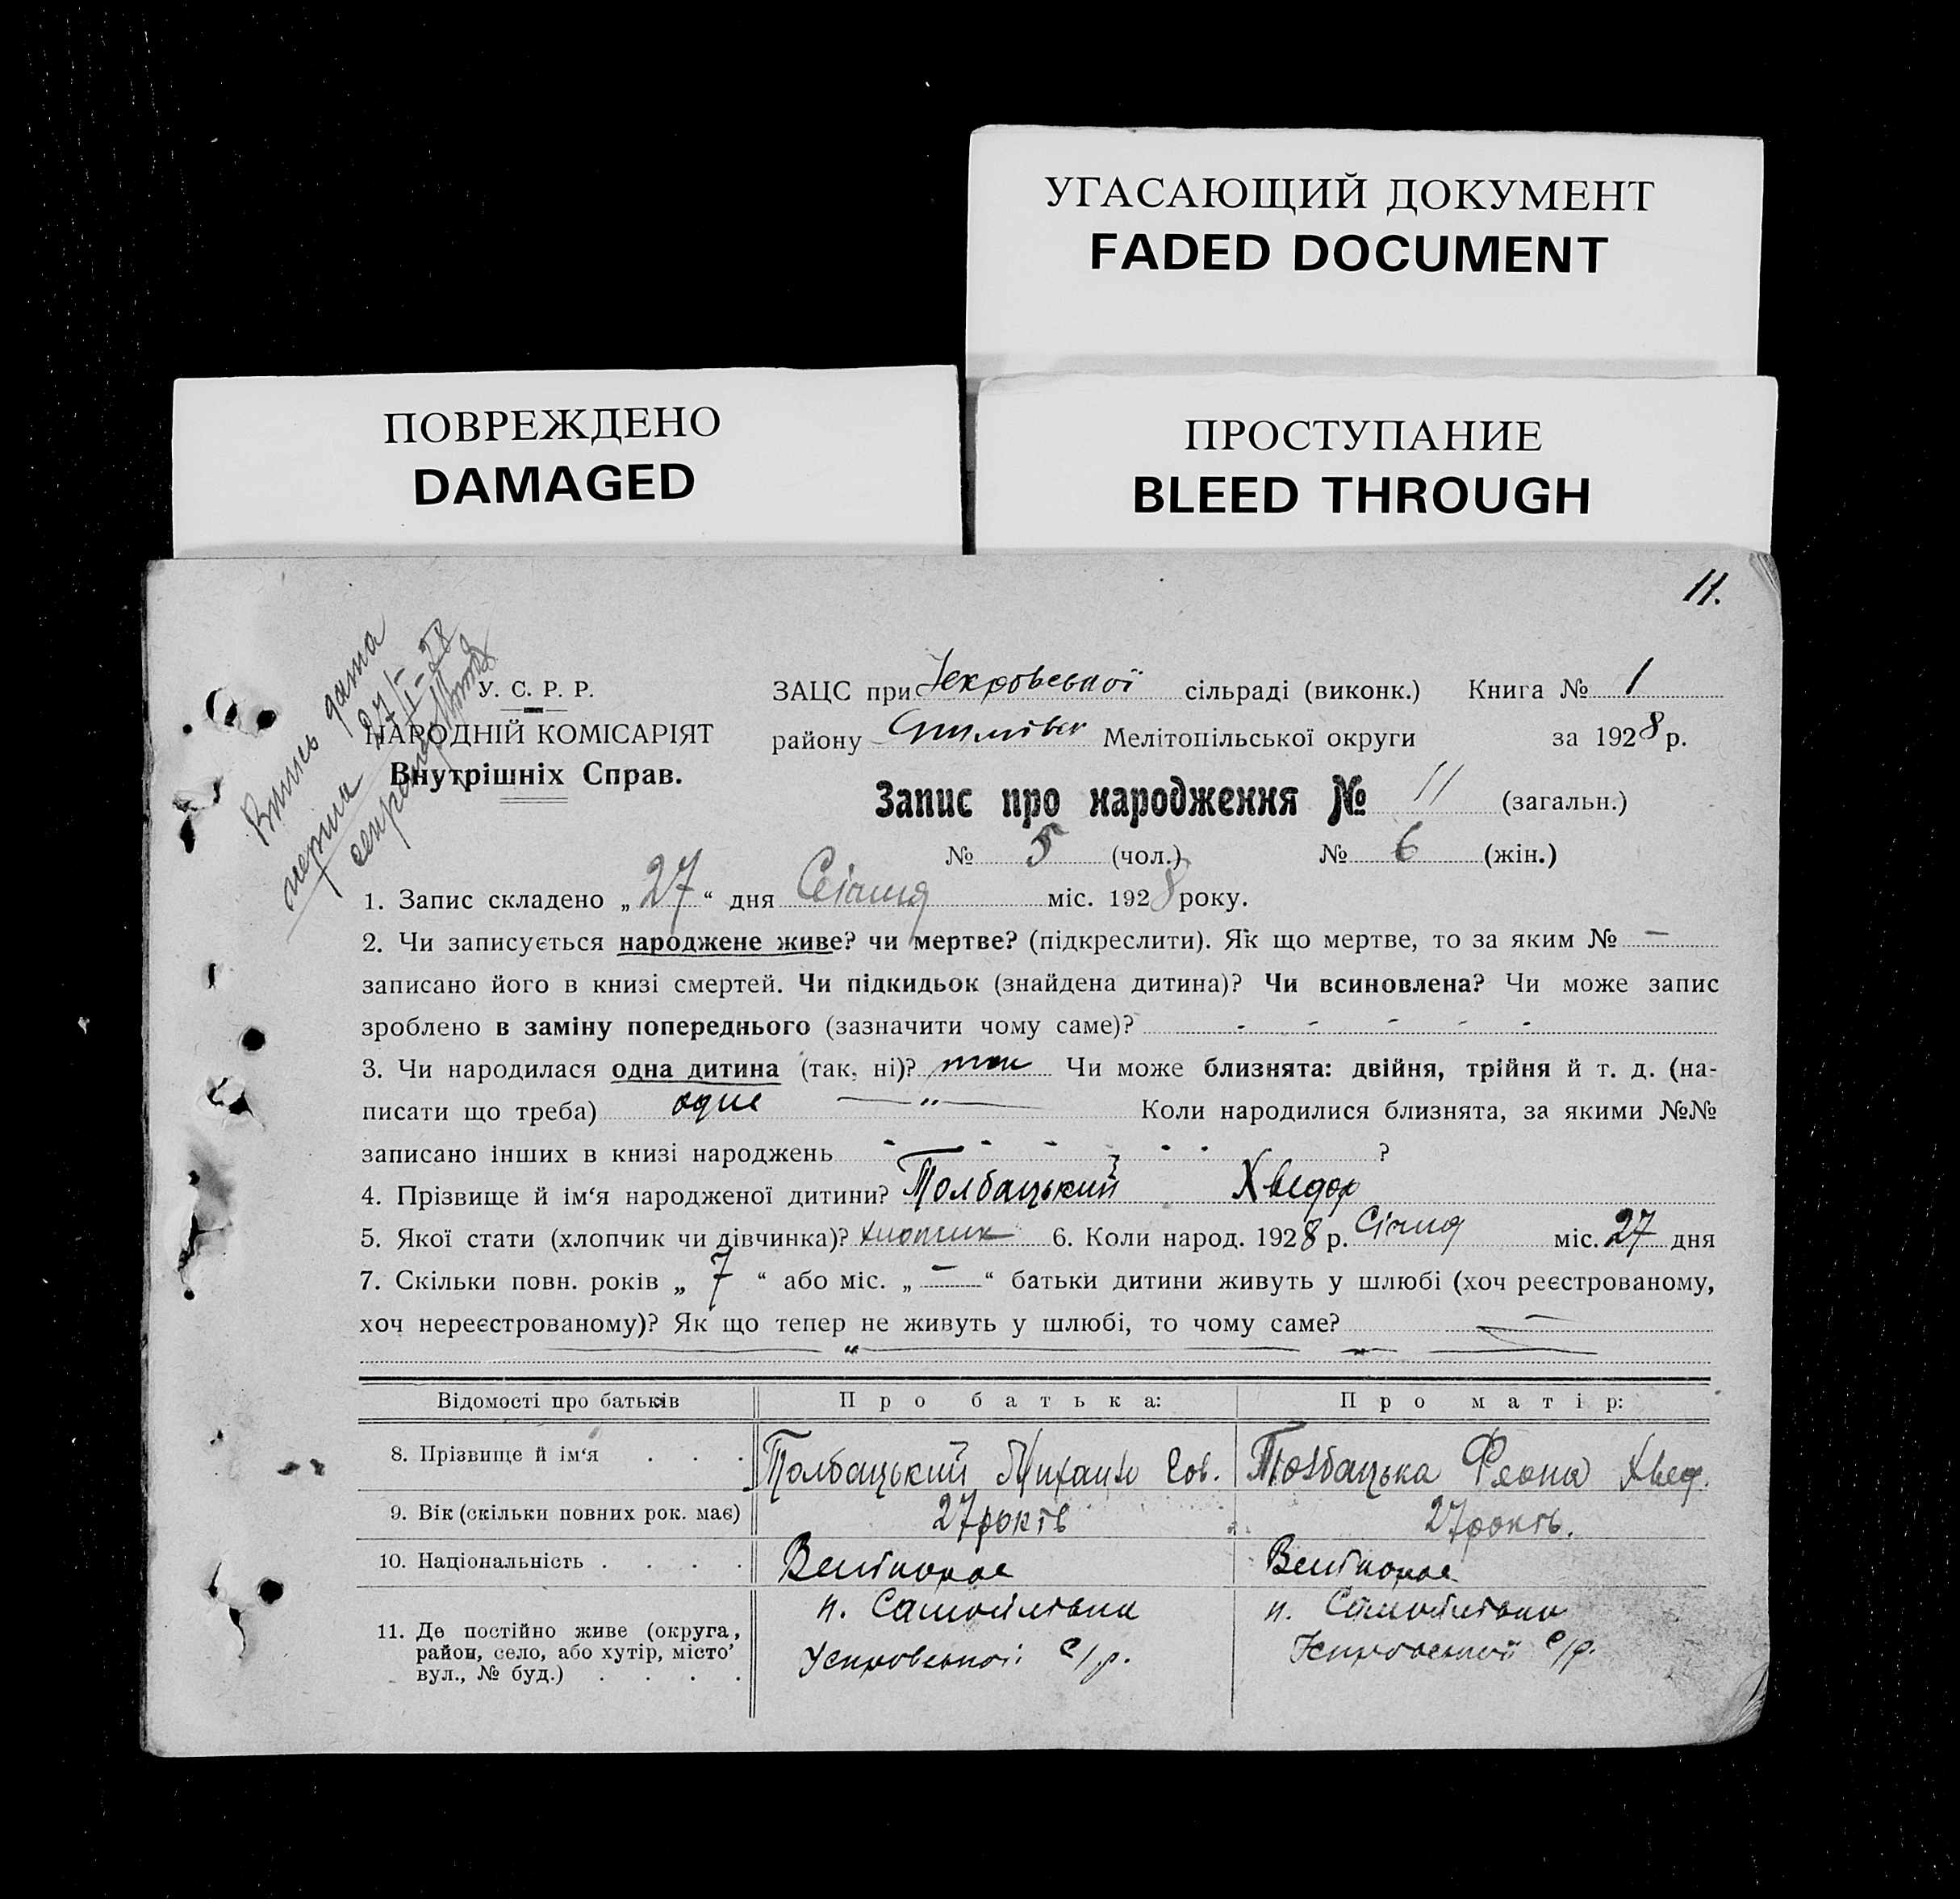 УГАСАЮЩИЙ ДОКУМЕНТ
FADED DOCUMENT
ПОВРЕЖДЕНО
DAMAGED
ПРОСТУПАНИЕ
BLEED THROUGH
11.
Випись дата
27/I-28
У. С. Р. Р.
НАРОДНІЙ КОМІСАРІЯТ
Внутрішніх Справ.
ЗАЦС при сільраді (виконк.) Книга № 1
району Мелітопільської округи за 1928 р.
Запис про народження № 11 (загальн.)
№ 5 (чол.) № 6 (жін.)
1. Запис складено „ 27 “ дня Січня міс. 1928 року.
2. Чи записується народжене живе? чи мертве? (підкреслити). Як що мертве, то за яким № —
записано його в книзі смертей. Чи підкидьок (знайдена дитина)? Чи всиновлена? Чи може запис
зроблено в заміну попереднього (зазначити чому саме)? - - - - -
3. Чи народилася одна дитина (так, ні)? так Чи може близнята: двійня, трійня й т. д. (на-
писати що треба) одне — „ — Коли народилися близнята, за якими №№
записано інших в книзі народжень - - - - - - ?
4. Прізвище й ім‘я народженої дитини? Толбацький Хведор
5. Якої стати (хлопчик чи дівчинка)? хлопчик 6. Коли народ. 1928 р. Січня міс. 27 дня
7. Скільки повн. років „ 7 “ або міс. „ — “ батьки дитини живуть у шлюбі (хоч реєстрованому,
хоч нереєстрованому)? Як що тепер не живуть у шлюбі, то чому саме? —
— „ —
Відомості про батьків Про батька: Про матір:
8. Прізвище й ім‘я . . . Толбацький Михайло Толбацька Хвед.
9. Вік (скільки повних рок. має) 27 років 27 років.
10. Національність . . . . Велікорос Велікорос
11. Де постійно живе (округа, район, село, або хутір, місто, вул., № буд.) . . . . п. Самойлівка п. Самойлівка
с/р. с/р.